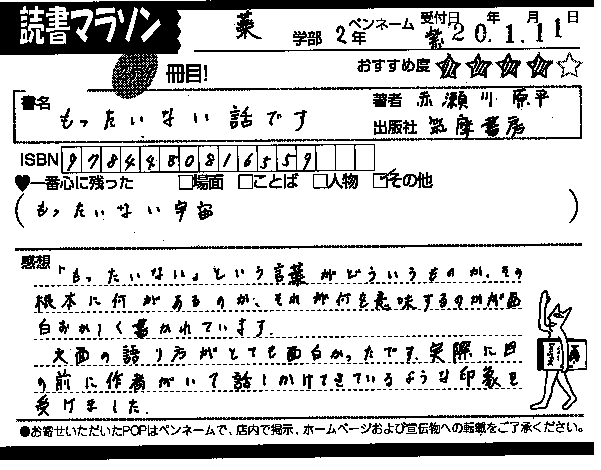 読書マラソン
薬 学部 2年 ペンネーム 紫 受付日 20年 1.月 11日
冊目!
おすすめ度 ★★★★☆
書名 もったいない話です
著者 赤瀬川原平
出版社 筑摩書房
ISBN 9784480816559
♥一番心に残った □場面 □ことば □人物 ☑その他
(もったいない宇宙)
感想
「もったいない」という言葉がどういうものか、その
根本に何があるのか、それが何を意味するのかが面
白おかしく書かれています。
文面の語り方がとても面白かったです。実際に目
の前に作者がいて話しかけてきているような印象を
受けました.
●お寄せいただいたPOPはペンネームで、店内で掲示、ホームページおよび宣伝物への転載をご了承ください。